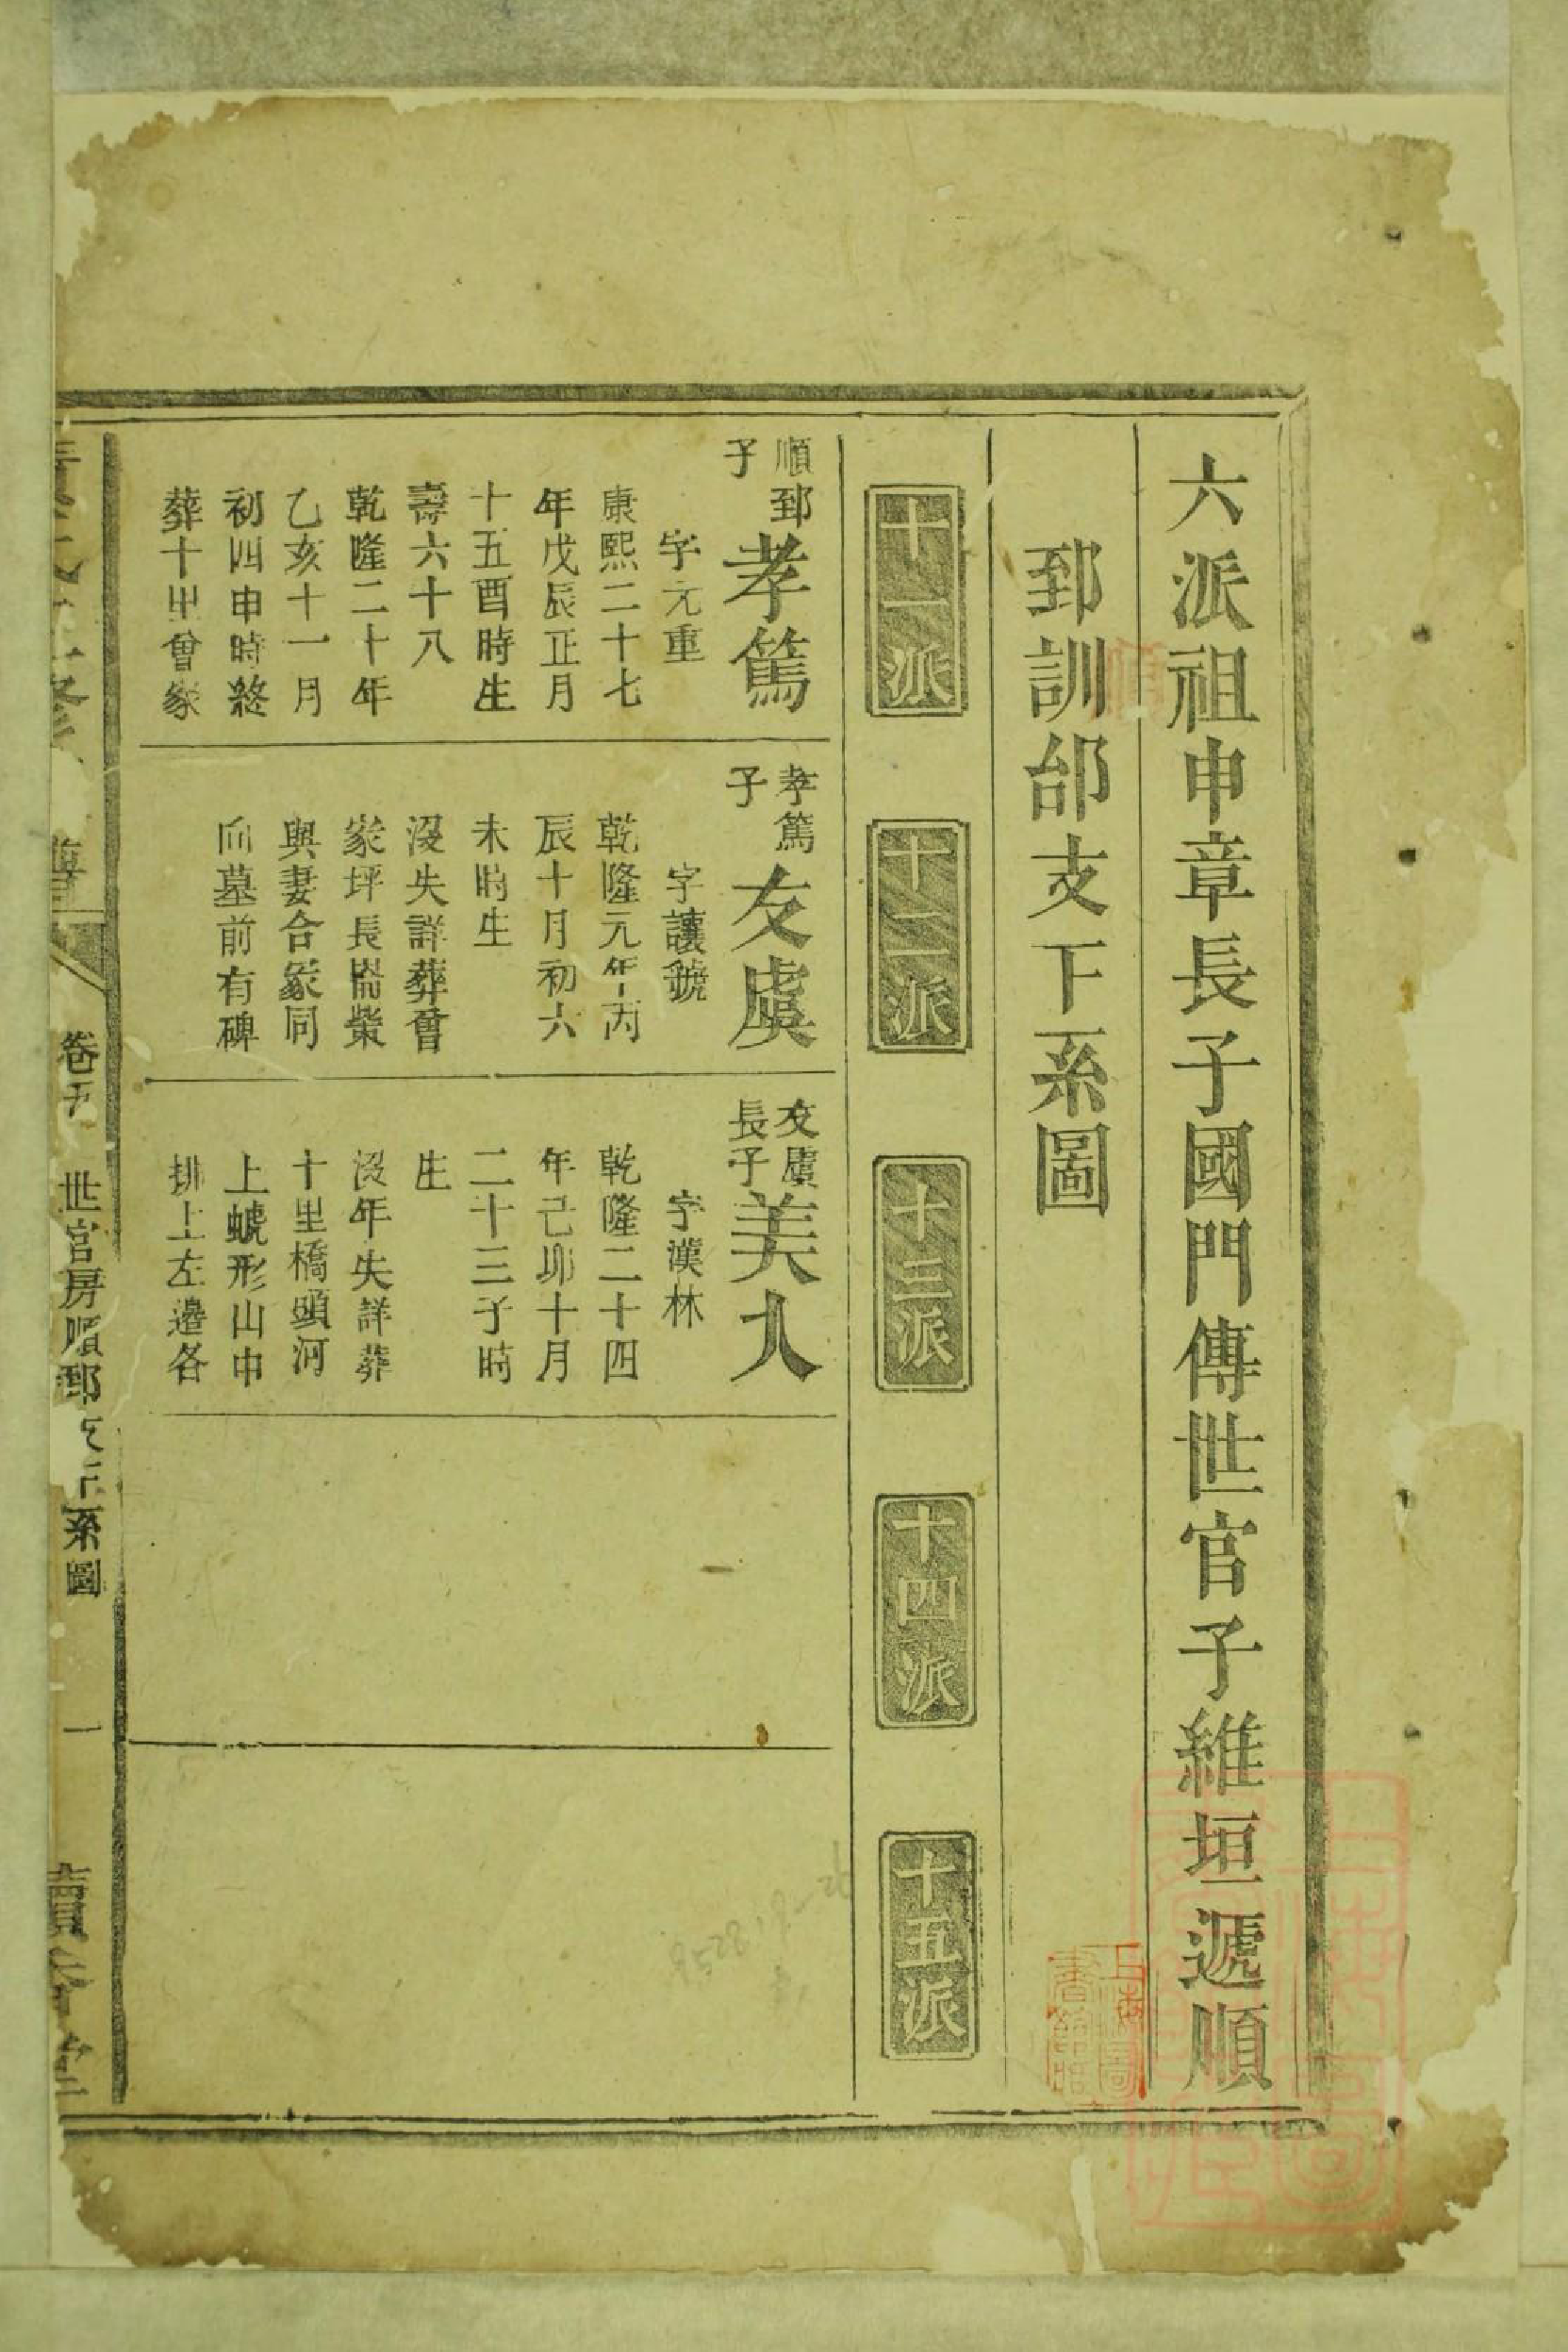 六派祖申章長子國門傳世官子維垣遞順
郅訓邰支下系圖
十一派
十二派
十三派
十四派
十五派
順郅
子
孝篤
字元重
康熙二十七
年戊辰正月
十五酉時生
壽六十八
乾隆二十年
乙亥十一月
初四申時終
葬十里會家
孝篤
子
友虞
字讓號
乾隆元年丙
辰十月初六
未時生
沒失詳葬會
家坪長崙榮
與妻合冢同
向墓前有碑
友虞
長子
美人
字漢林
乾隆二十四
年己卯十月
二十三子時
生
沒年失詳葬
十里橋頭河
上蛯形山中
排上左邊各
卷五
世官房順郅支下系圖
一